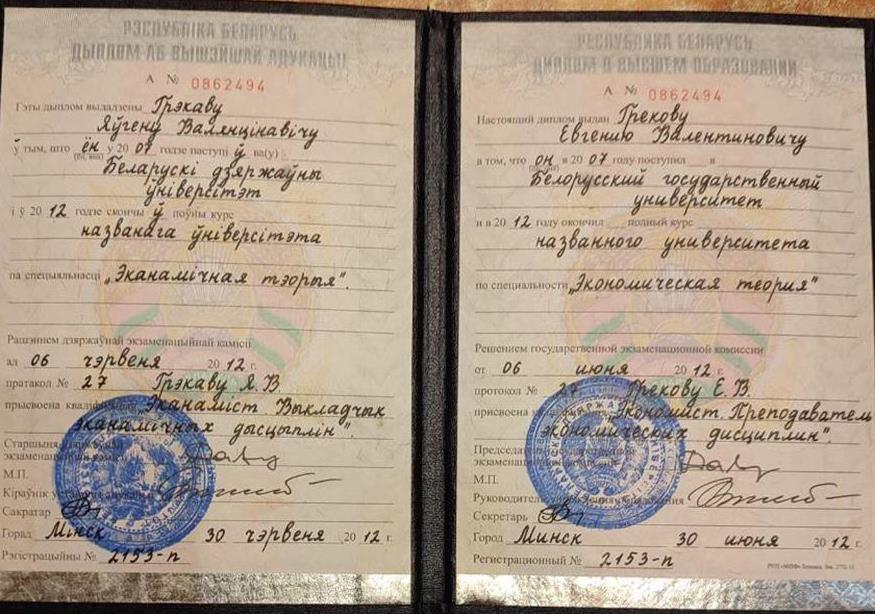 РЭСПУБЛІКА БЕЛАРУСЬ
ДЫПЛОМ АБ ВЫШЭЙШАЙ АДУКАЦЫІ
А № 0862494
Гэты дыплом выдадзены Грэкаву
Яўгену Валянцінавічу
ў тым, што ён у 2007 годзе паступіў ў ва(у)
(ён, яна)
Беларускі дзяржаўны
ўніверсітэт
і ў 2012 годзе скончыў поўны курс
названага ўніверсітэта
па спецыяльнасці „Эканамічная тэорыя".
Рашэннем дзяржаўнай экзаменацыйнай камісіі
ад 06 чэрвеня 2012 г.
пратакол № 27 Грэкаву Я. В.
прысвоена кваліфікацыя „Эканаміст. Выкладчык
эканамічных дысцыплін".
Старшыня дзяржаўнай
экзаменацыйнай камісіі
М.П.
Кіраўнік установы адукацыі
Сакратар
Горад Мінск 30 чэрвеня 2012 г.
Рэгістрацыйны № 2153-п
РЕСПУБЛИКА БЕЛАРУСЬ
ДИПЛОМ О ВЫСШЕМ ОБРАЗОВАНИИ
А № 0862494
Настоящий диплом выдан Грекову
Евгению Валентиновичу
в том, что он в 2007 году поступил в
Белорусский государственный
университет
и в 2012 году окончил полный курс
названного университета
по специальности „Экономическая теория"
Решением государственной экзаменационной комиссии
от 06 июня 2012 г.
протокол № 27 Грекову Е. В.
присвоена Экономист. Преподаватель
экономических дисциплин".
Председатель государственной
экзаменационной комиссии
М.П.
Руководитель учреждения образования
Секретарь
Город Минск 30 июня 2012 г.
Регистрационный № 2153-п